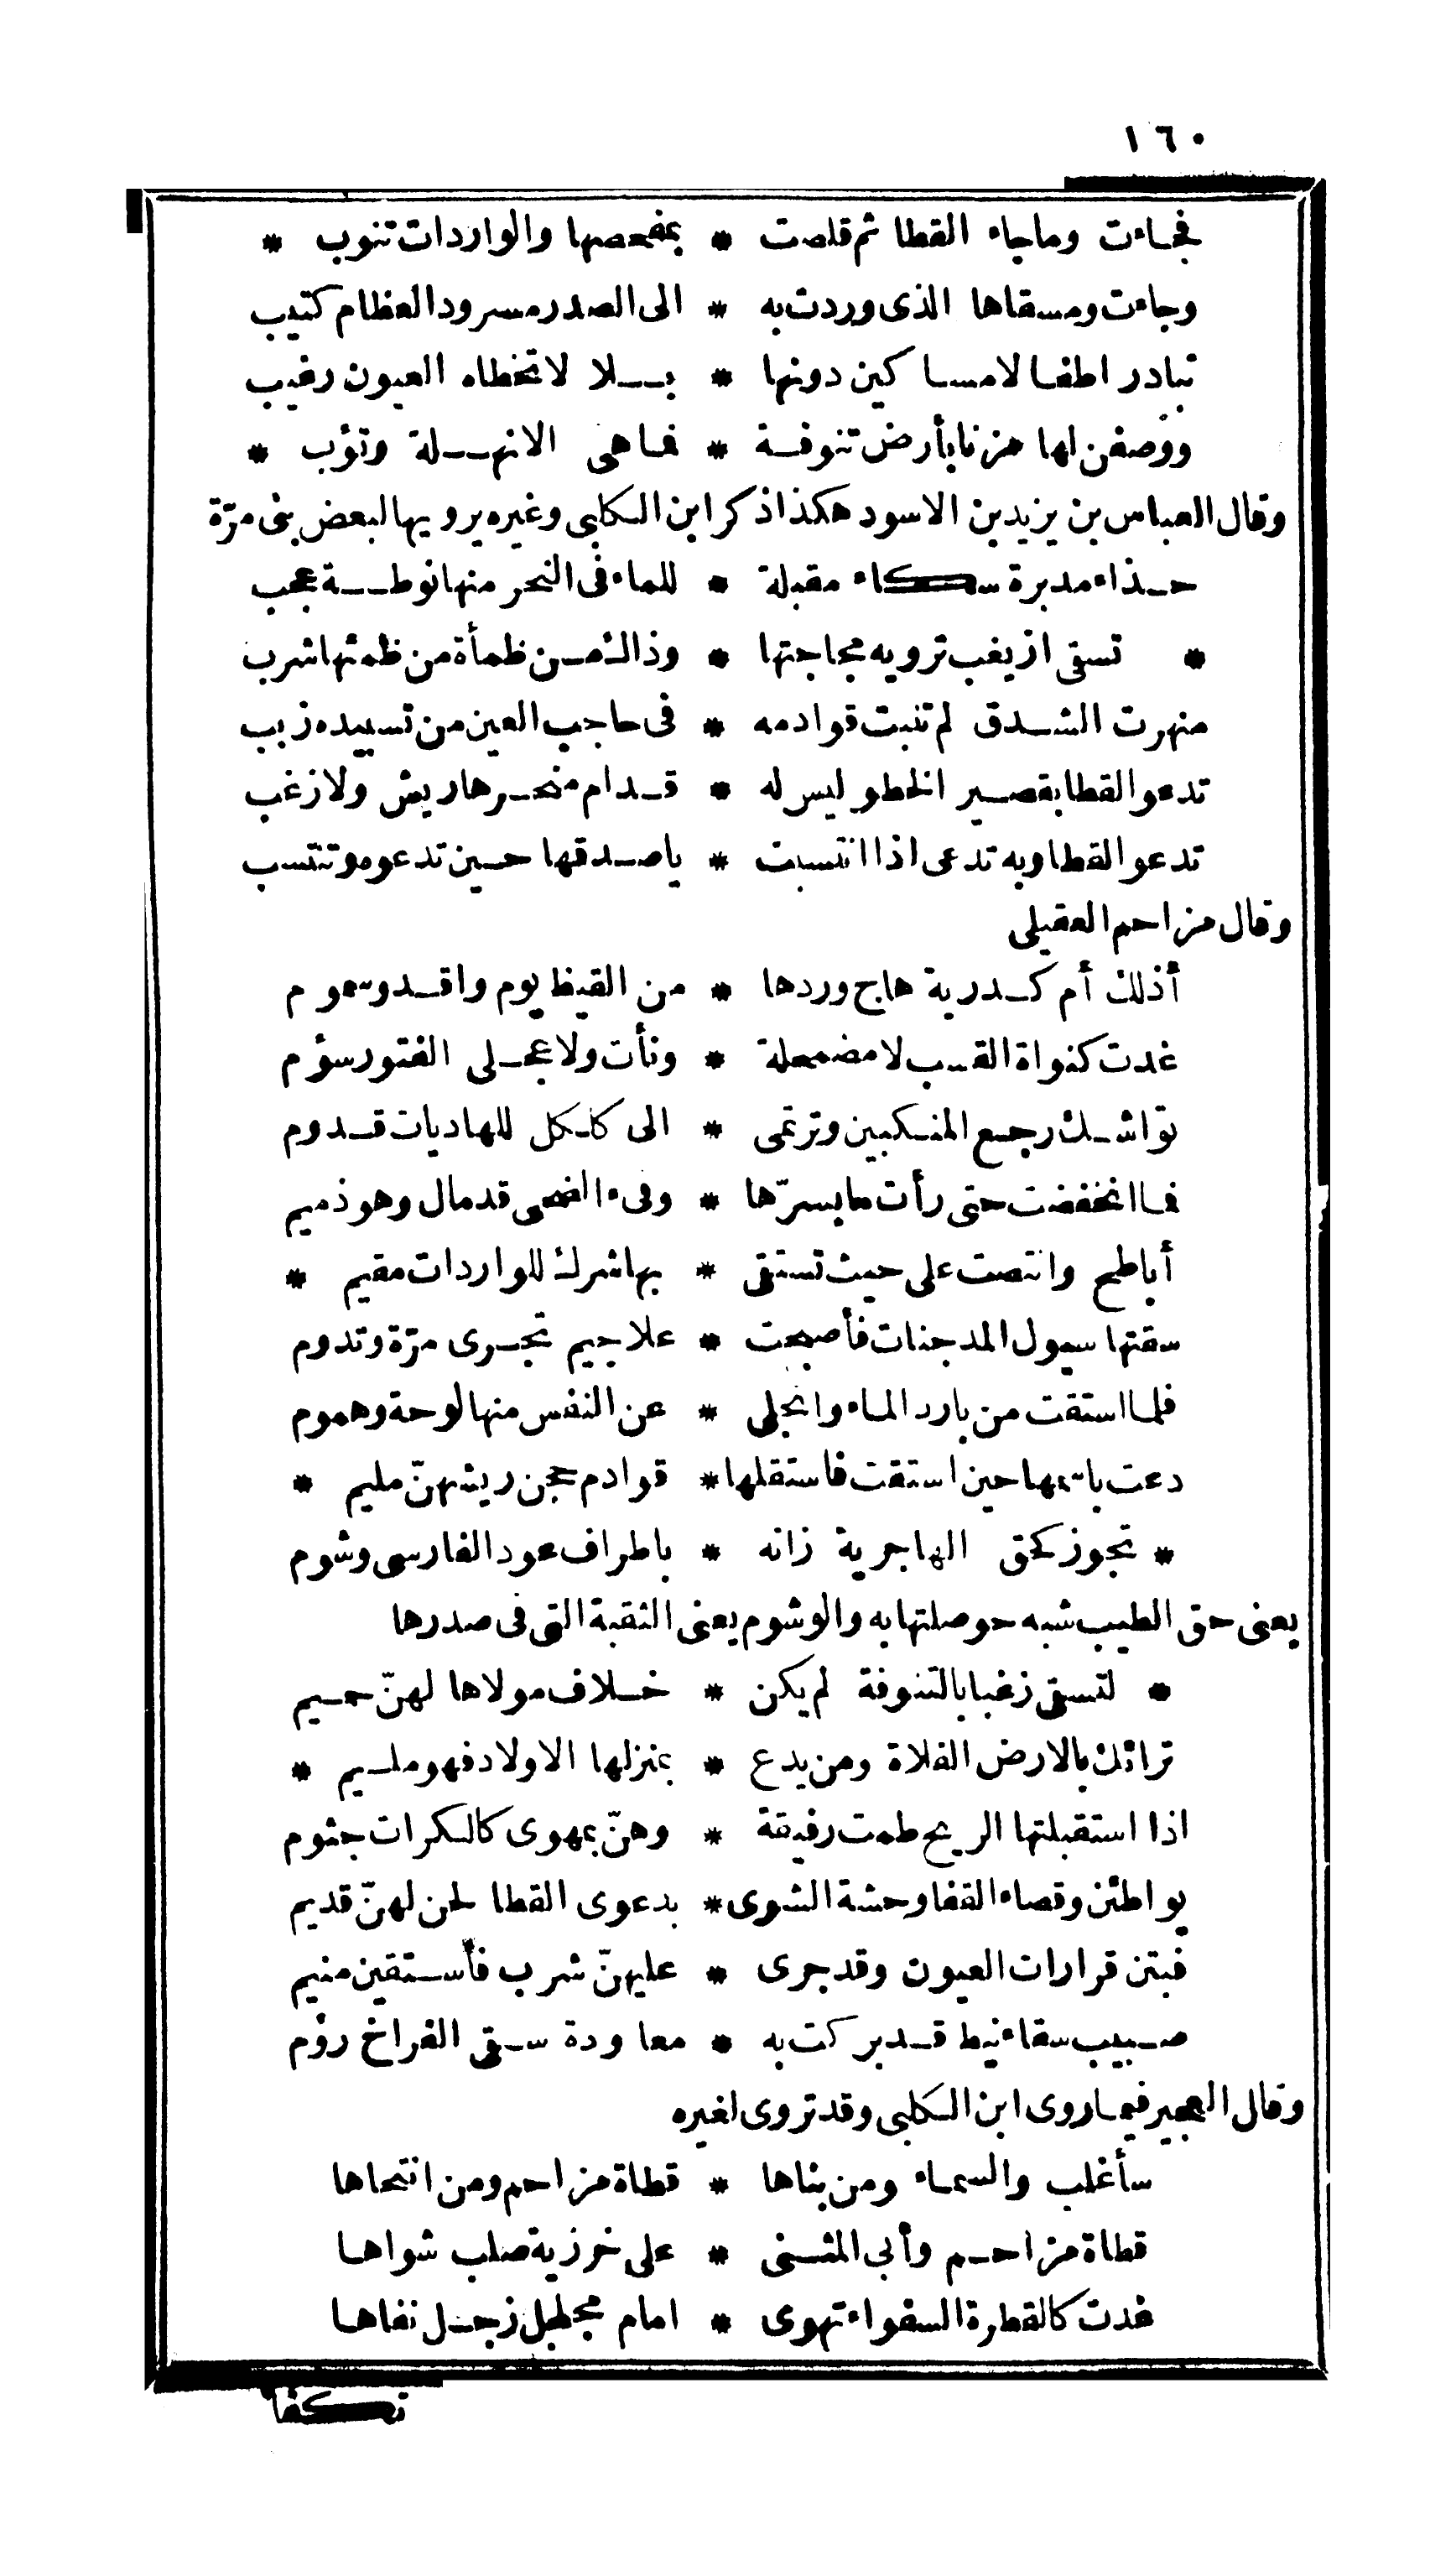 ١٦٠
فجاءت وماجاء القطا ثم قلصت * بمفحصها والواردات تنوب *
وجاءت ومسقاها الذى وردت به * الى الصدر مسرود العظام كتيب
تبادر اطفالا مساكين دونها * بلا لا تخطاه العيون رغيب
ووصفن لها مزنا بأرض تنوفة * فما هى الا نهلة وتؤب *
وقال العباس بن يزيد بن الاسود هكذا ذكر ابن الكلبى وغيره يرويها لبعض بنى مرّة
حذاء مدبرة سكاء مقبلة * للماء فى النحر منها نوطة عجب
* تسقى ازيغب ترويه مجاجتها * وذاك من ظمأة من ظمئها شرب
منهرت الشدق لم تنبت قوادمه * فى حاجب العين من تسبيده زبب
تدعو القطا بقصير الخطو ليس له * قدام منحرها ريش ولا زغب
تدعو القطا وبه تدعى اذا انتسبت * يا صدقها حين تدعوه وتنتسب
وقال مزاحم العقيلى
أذلك أم كدرية هاج وردها * من القيظ يوم واقد وسموم
غدت كنواة القسب لا مضمحلة * ونأت ولا عجلى الفتور سؤم
تواشك رجع المنكبين وترتمى * الى كلكل للهاديات قدوم
فما انخفضت حتى رأت ما يسرّها * وفىء الضحى قد مال وهو ذميم
أباطح وانتصت على حيث تستقى * بها شرك للواردات مقيم *
سقتها سيول المدجنات فأصبحت * علاجيم تجرى مرّة وتدوم
فلما استقت من بارد الماء وانجلى * عن النفس منها لوحة وهموم
دعت باسمها حين استقت فاستقلها * قوادم حجن ريشهنّ مليم *
* تجوز كحق الهاجرية زانه * باطراف عود الفارسى وشوم
يعنى حق الطيب شبه حوصلتها به والوشوم يعنى النقبة التى فى صدرها
* لتسقى زغبا بالتنوفة لم يكن * خلاف مولاها لهنّ حميم
ترائك بالارض الفلاة ومن يدع * بمنزلها الاولاد فهو مليم *
اذا استقبلتها الريح طمت رفيقة * وهنّ بمهوى كالكرات جثوم
يواطئن وقصاء القفا وحشة الشوى * بدعوى القطا لحن لهنّ قديم
فبتن قرارات العيون وقد جرى * عليهنّ شرب فأستقين منيم
صبيب سقاء نيط قد بركت به * معاودة سقى الفراخ رؤم
وقال العجير فيما روى ابن الكلبى وقد تروى لغيره
سأغلب والسماء ومن بناها * قطاة مزاحم ومن انتحاها
قطاة مزاحم وأبى المثنى * على خوزية صلب شواها
غدت كالقطرة السفواء تهوى * امام مجلجل زجل نفاها
تكفأ